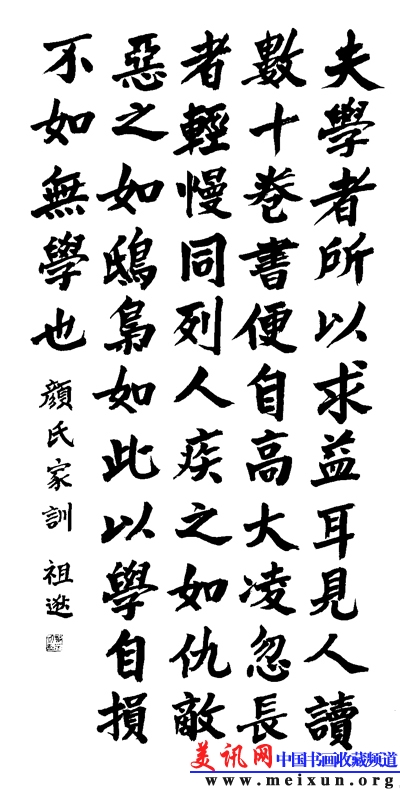 夫學者所以求益耳見人讀
數十卷書便自高大凌忽長
者輕慢同列人疾之如仇敵
惡之如鴟梟如此以學自損
不如無學也
顏氏家訓 祖逖
美讯网 中国书画收藏频道
www.meixun.org